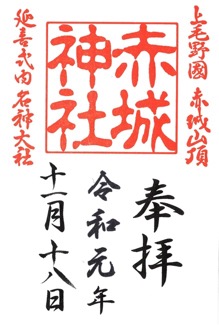 上毛野國 赤城山頂
赤城神社
延喜式内 名神大社
奉拝
令和元年
十一月十八日